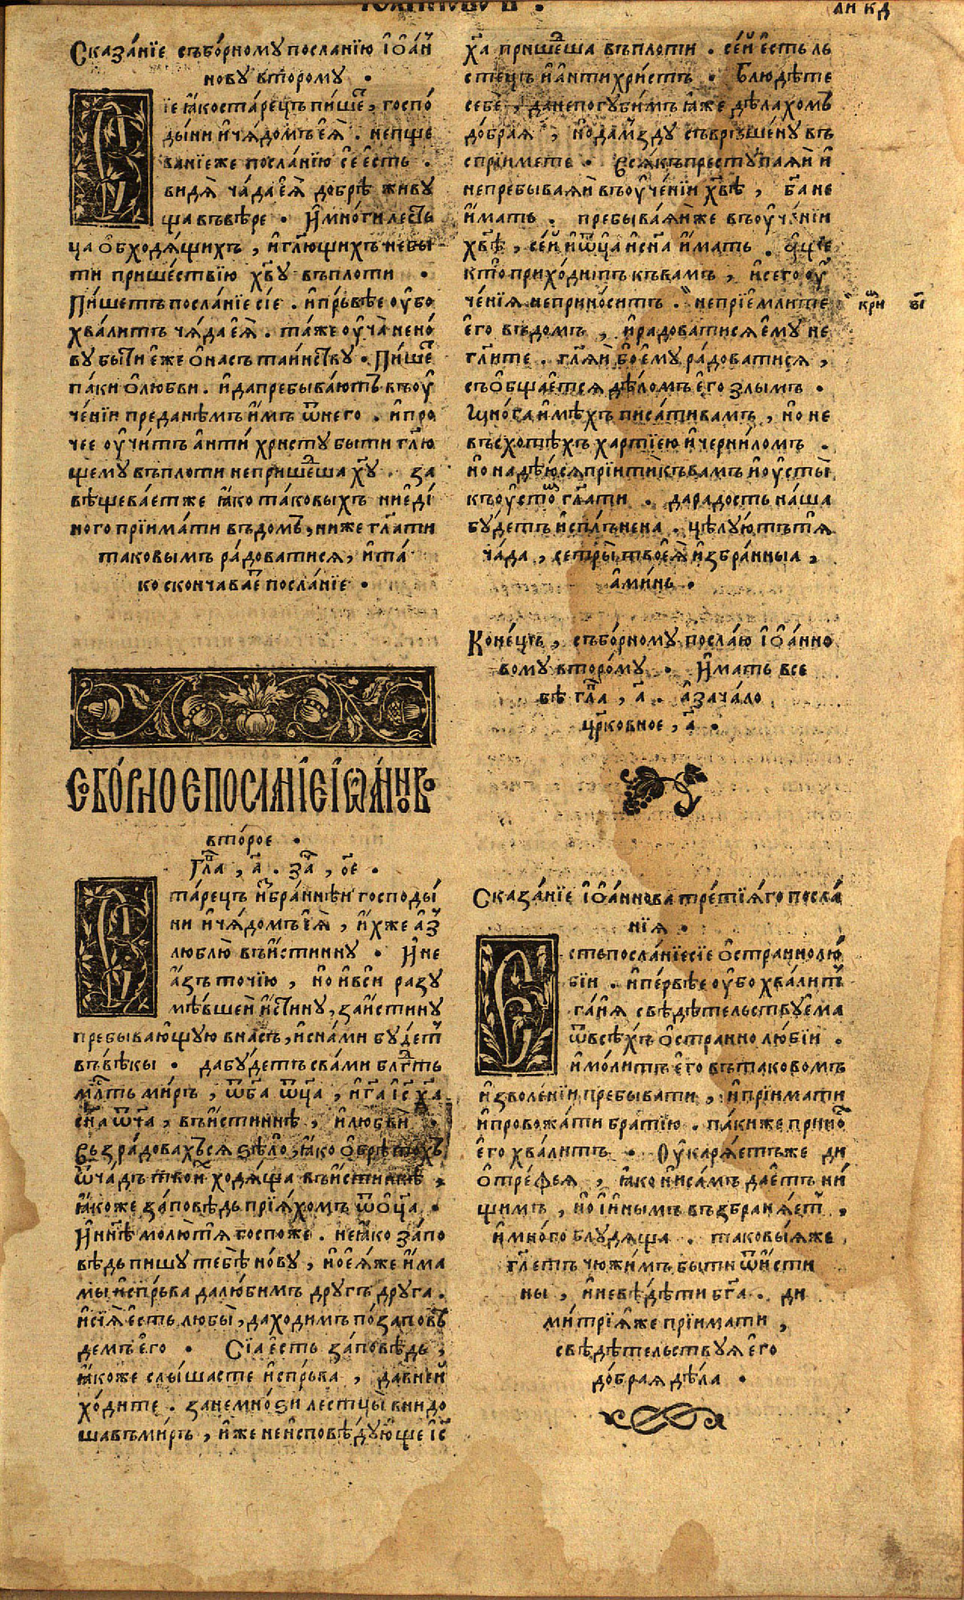 Сказанїе съборному посланїю іѡан
нову второму .
Сїе ꙗко старецъ пише, госпо
дыни и чядомъ еѧ . непще
ванїе же посланїю се есть .
видѧ чада еѧ добрѣ живу
ща въ вѣре . И многи лесть
ца обходящихъ , и глющихъ не бы
ти пришествїю хву въ плоти .
Пишетъ посланїе сїе . и прьвѣе оубо
хвалитъ чяда еѧ . таже оучѧ не но
ву быти еже о насъ таинству . Пише
паки о любви . и да пребываютъ въ оу
ченїи преданѣмъ имъ ѿ него . и про
чее оучитъ антихристу быти глю
щему въ плоти не пришедша ху . за
вѣщеваетже ꙗко таковыхъ ни еди
ного прїимати въ домъ, ниже глати
таковымъ радоватися, и та
ко скончавае посланїе .
Сборное посланїе іѡанново
второе .
Гла , а . за , ѻе .
Старецъ избраннѣи господы
ни и чядомъ еѧ , ихже аз
люблю въ истинну . И не
азъ точїю , но и вси разу
мѣвшеи истину, за истину
пребывающую в насъ, и с нами будет
въ вѣкы . да будетъ с вами блгть
млть миръ , ѿ ба ѿца , и га іс ха
сна ѿча , въ истиннѣ , и любви .
Възрадовахся ѕѣло, ꙗко обрѣтохъ
ѿ чадъ твои ходяща въ истиннѣ ,
ꙗкоже заповѣдь прїяхомъ ѿ оца .
И ннѣ молютя госпоже . не ꙗко запо
вѣдь пишу тебѣ нову , но еяже има
мы испрьва да любимъ другъ друга .
и сїя есть любы , да ходимъ по запов
демъ его . Сїа есть заповѣдь ,
ꙗкоже слышасте испрьва , да в неи
ходите . зане мноѕи лестцы внидо
ша въ миръ , иже не исповѣдующе іс
ха пришедша въ плоти . сеи есть ль
стецъ и антихристъ . Блюдѣте
себе , да не погубимъ ꙗже дѣлахомъ
добрая , но да мзду съврьшену въ
спрїимете . Всякъ преступаяи и
не пребываяи въ оученїи хвѣ , ба не
имать . пребываяи же въ оученїи
хвѣ , сеи и ѿца и сна имать . аще
кто приходитъ къ вамъ , и сего оу
ченїя не приноситъ . не прїемлите
его въ домъ , и радоватися ему не
глите . гляи бо ему радоватися ,
съобщается дѣломъ его злымъ .
Многа имѣхъ писати вамъ , но не
въсхотѣхъ хартїею и черниломъ .
но надѣюся прїити къ вамъ и оусты
къ оустѡ глати . да радость наша
будетъ исплънена . цѣлуютъ тя
чада , сестры твоеѧ избранныа ,
аминь .
Конець , съборному послаю іѡанно
вому второму . Имать все
бѣ гла , а . а зачало
црковное , а .
Сказанїе іѡаннова третїяго посла
нїя .
Есть посланїе сїе о страннолю
бїи . и первѣе оубо хвалитъ
гаия свѣдѣтельствуема
ѿ всѣхъ о страннолюбїи .
и молитъ его въ таковомъ
изволенїи пребывати , и прїимати
и провожати братїю . паки же прино
его хвалитъ . Оукаряетъже ди
отрефея , ꙗко ни самъ даетъ ни
щимъ , но и инымъ възбраняет ,
и много блудяща . таковыя же
глетъ чюжимъ быти ѿ исти
ны , и не вѣдѣти бга . ди
митрїя же прїимати ,
свѣдѣтельствуя его
добрая дѣла .